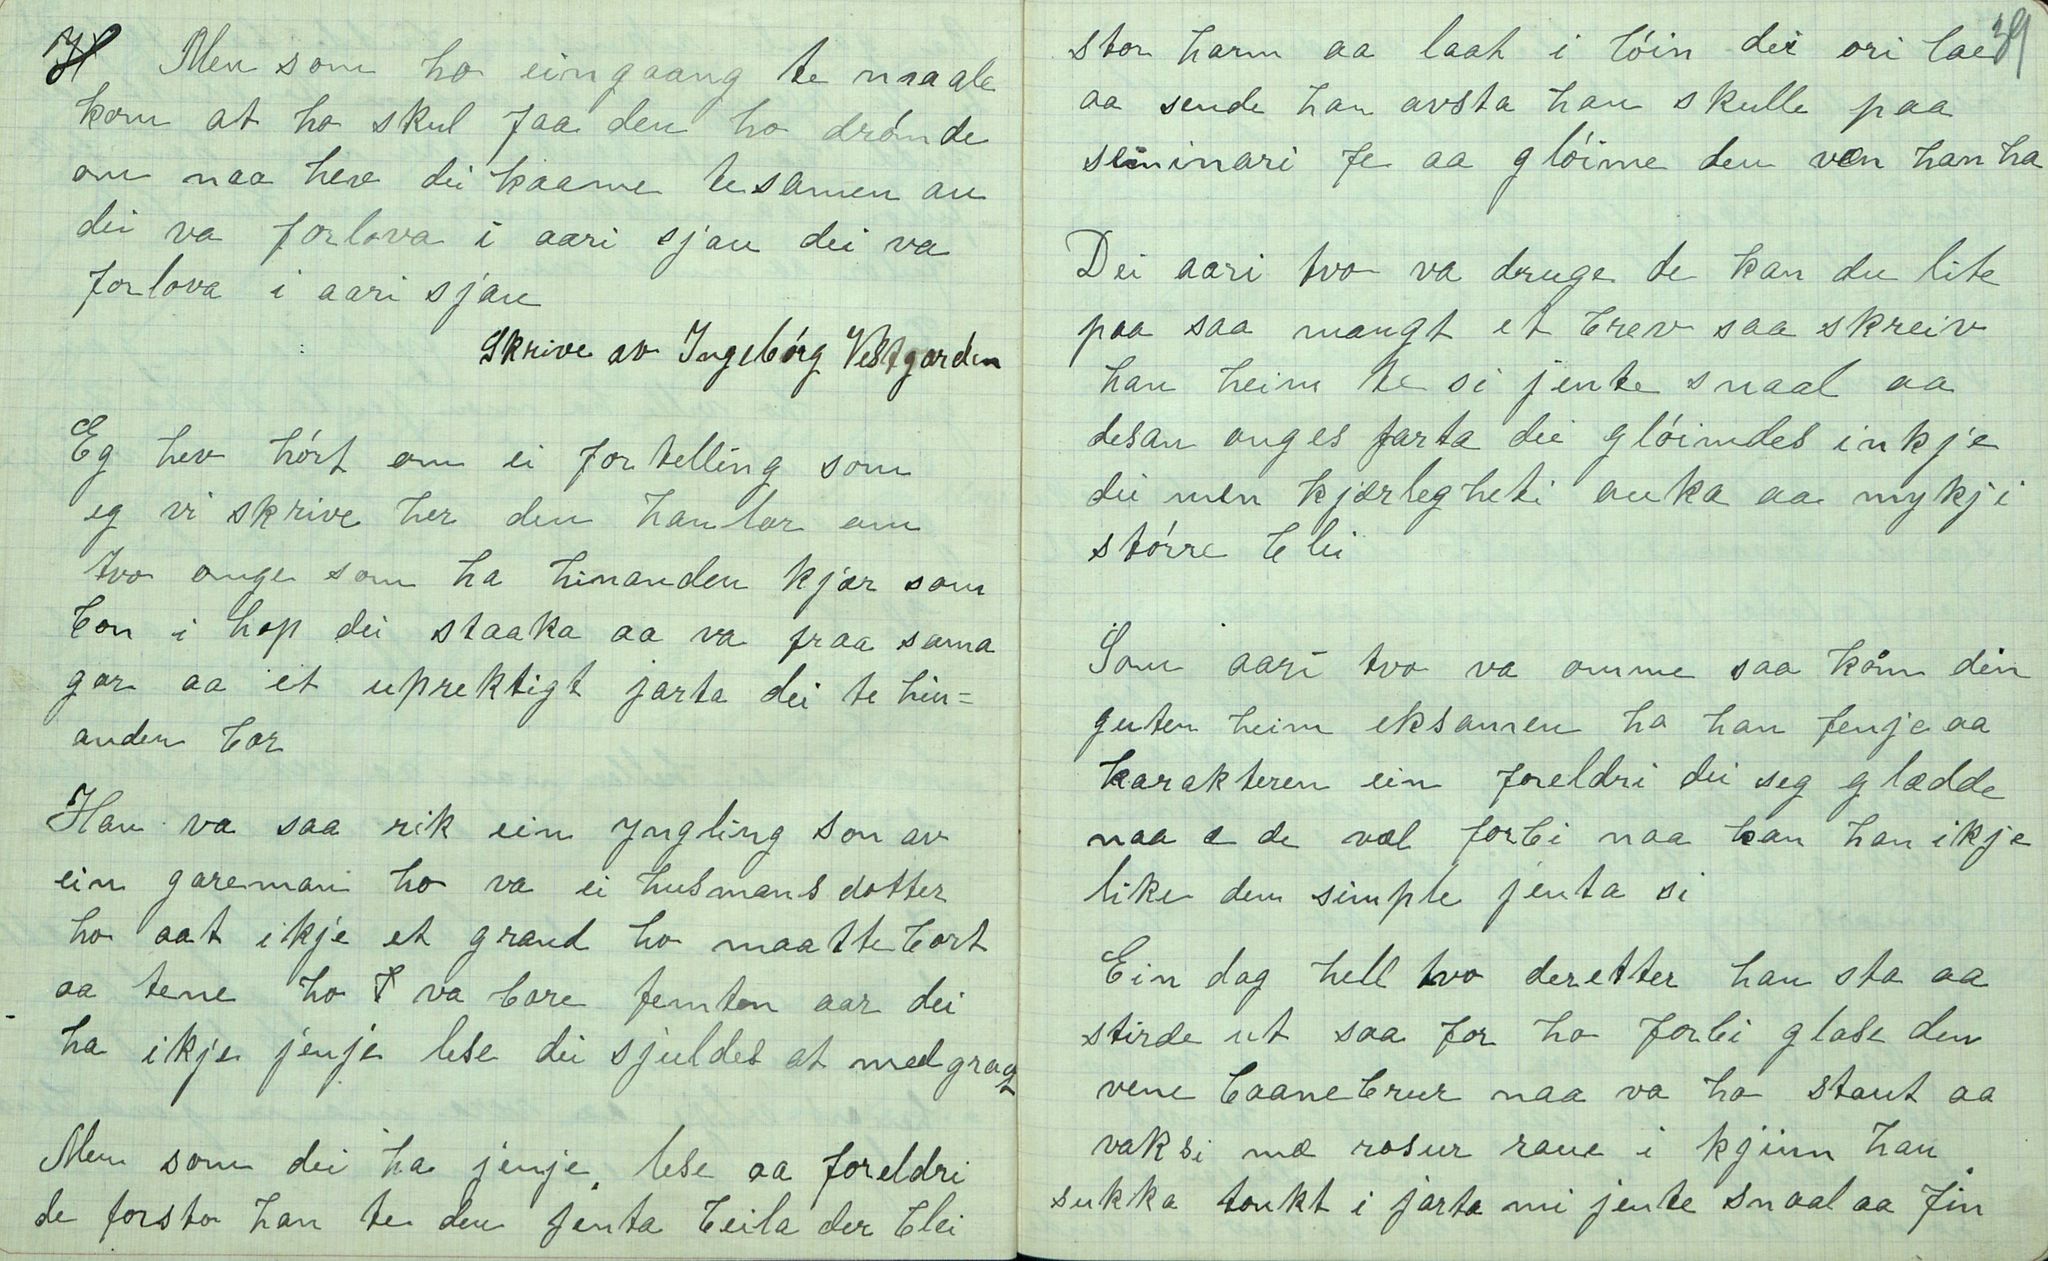 Men som ho eingaang te maale
kom at ho skul faa den ho drømde
om naa hev dei kaame tesamen au
dei va forlova i aari sjau dei va
forlova i aari sjau
Skrive av Ingebórg Vestgarden
Eg hev hórt om ei fortelling som
eg vi skrive her den hanlar om
tvo onge som ha hinanden kjær som
bon i hop dei staaka aa va fraa sama
gar aa et uprektigt jarta dei te hin=
anden bar
Han va saa rik ein yngling son av
ein gareman ho va ei husmansdotter
ho aat ikje et grand ho maatte bort
aa tene ho va bare femton aar dei
ha ikje jenje lese dei sjuldes at med graat
Men som dei ha jenje lese aa foreldri
de forsto han te den jenta beila der blei
39
stor harm aa laat i bóin dei ori lae
aa sende han avsta han skulle paa
seminari fe aa glóime den ven han ha
Dei aari tvo va druge de kan du lite
paa saa mangt et brev saa skreiv
han heim te si jente snaal aa
desan onges farta dei glóimdes inkje
dei men kjærlegheti auka aa mykji
stórre blei
Som aari tvo va omme saa kåm den
guten heim eksamen ha han fenje aa
karakteren ein foreldri dei seg glædde
naa e de væl forbi naa kan han ikje
like den simple jenta si
Ein dag hell tvo deretter han sto aa
stirde ut saa for ho forbi glase den
vene baanebrur naa va ho staut aa
vaksi mæ rosur raue i kjinn han
sukka tonkt i jarta mi jente snaal aa fin